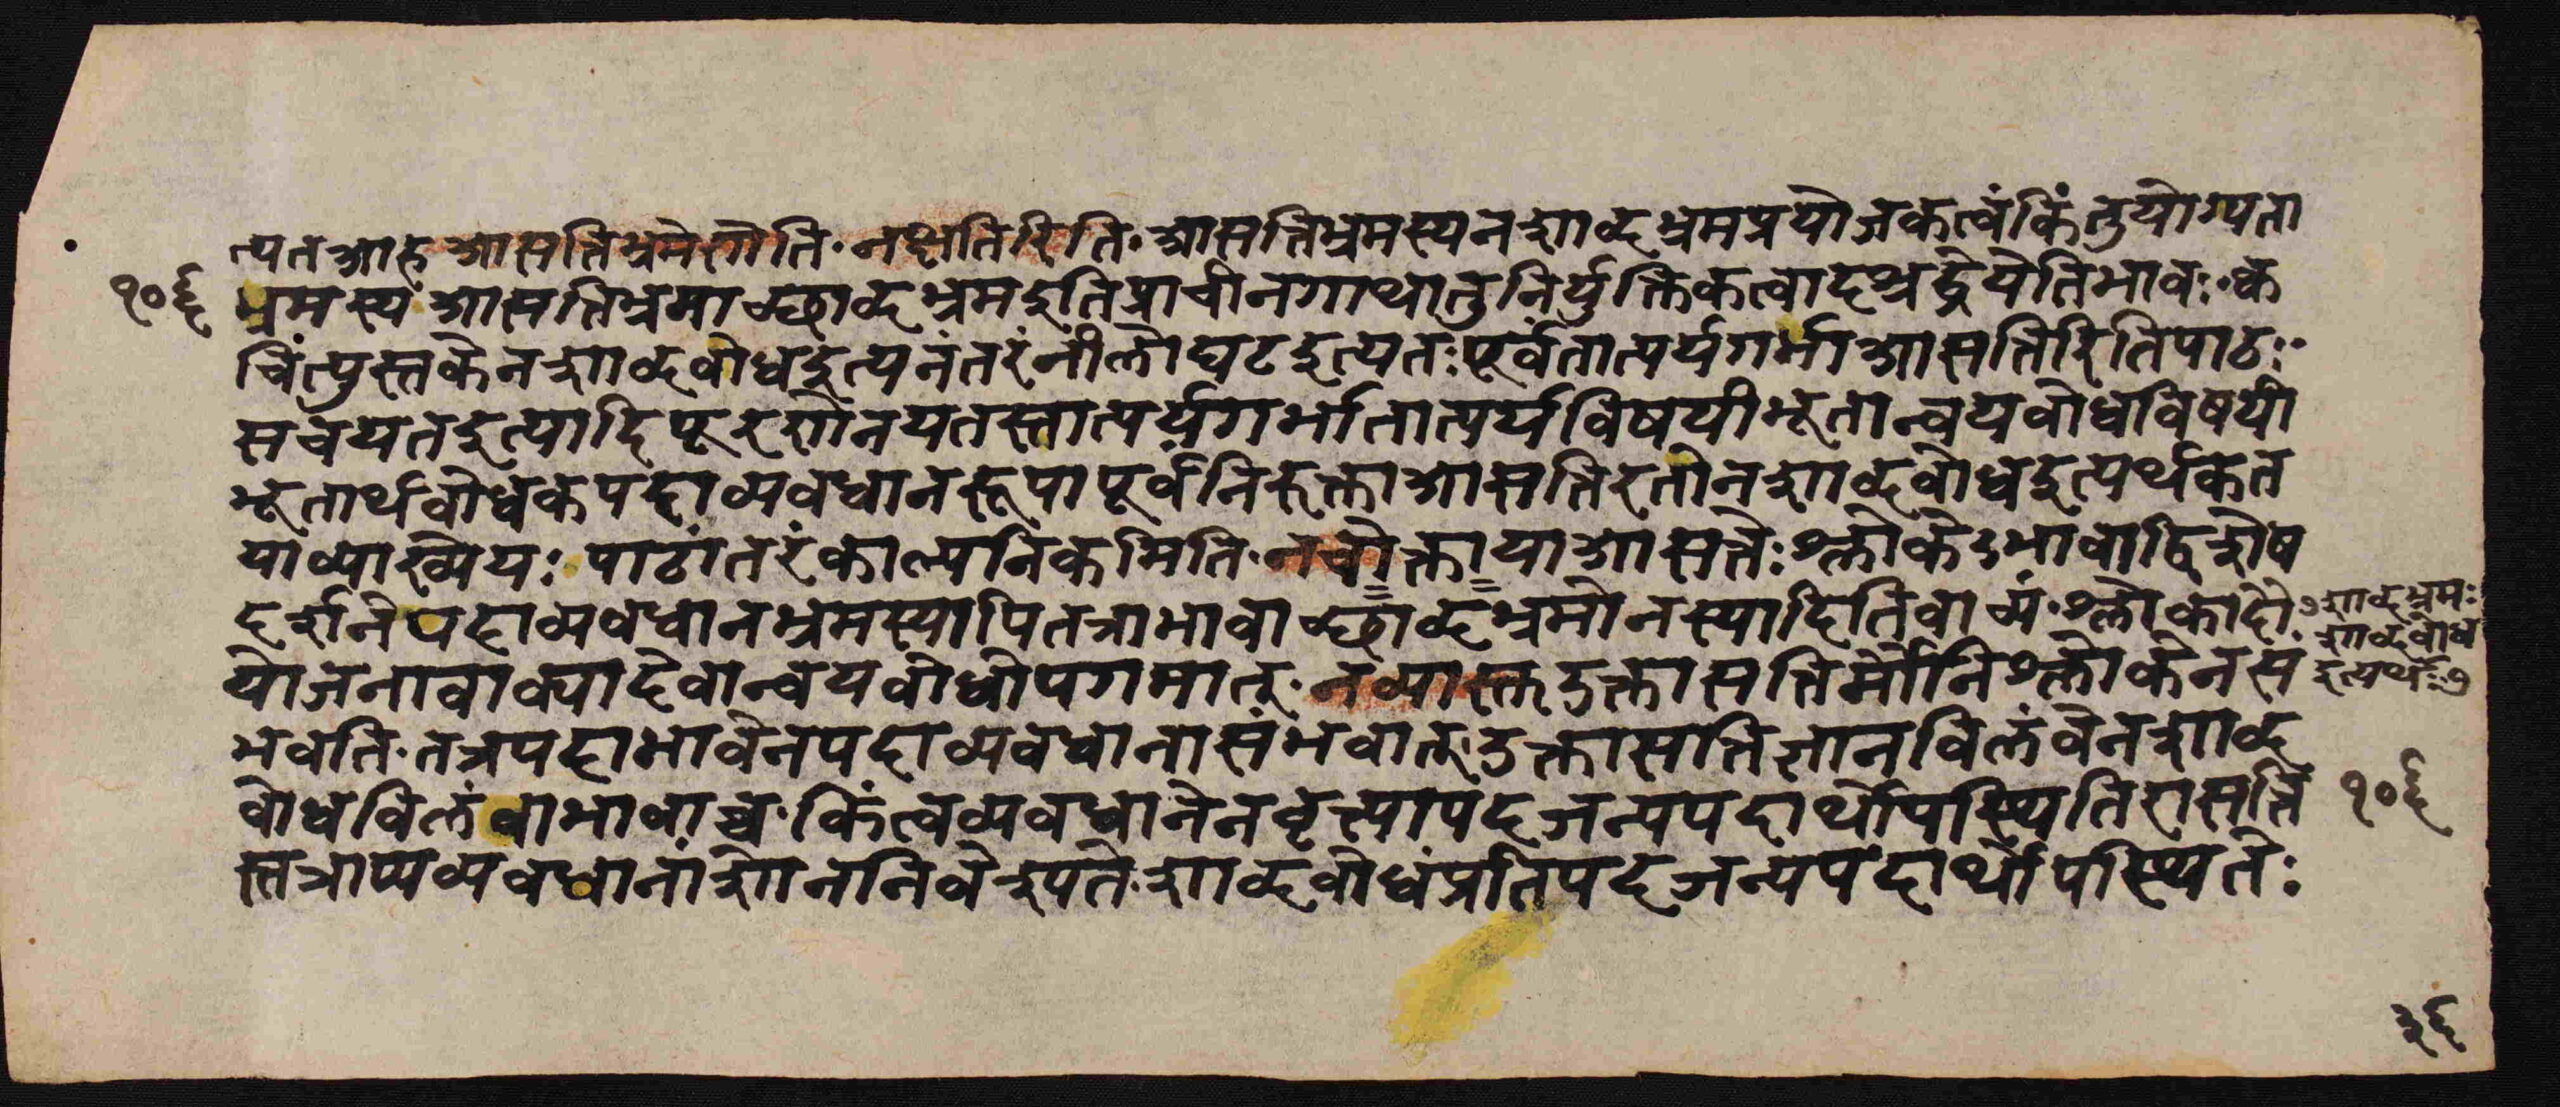 त्यत आह आसत्तिभ्रमेणेति · न क्षतिरिति · आसत्तिभ्रमस्य न शाब्दभ्रमप्रयोजकत्वं किंतु योग्यता
भ्रमस्य आसत्तिभ्रमाच्छाब्दभ्रम इति प्राचीनगाथा तु निर्युक्तिकत्वादश्रद्धेयेति भावः · क्व
चित्पुस्तके न शाब्दबोध इत्यनंतरं नीलो घट इत्यतः पूर्वं तात्पर्यगर्भा आसत्तिरिति पाठः ·
स च यत इत्यादि पूरणेन यतस्तात्पर्यगर्भा तात्पर्यविषयीभूतान्वयबोधविषयी
भूतार्थबोधकपदाव्यवधानरूपा पूर्वनिरुक्ता आसत्तिरतो न शाब्दबोध इत्यर्थकत
या व्याख्येयः पाठांतरं काल्पनिकमिति · न चोक्ताया आसत्तेः श्लोकेऽभावाद्विशेष
दर्शने पदाव्यवधानभ्रमस्यापि तत्राभावाच्छाब्दभ्रमो न स्यादिति वाच्यं · श्लोकादौ
योजनावाक्यादेवान्वयबोधोपगमात् · नव्यास्तु उक्तासत्तिर्मौनिश्लोके न सं
भवति · तत्र पदाभावेन पदाव्यवधानासंभवात् उक्तासत्तिज्ञानविलंबेन शाब्द
बोधविलंबाभावाच्च · किंत्वव्यवधानेन वृत्त्या पदजन्यपदार्थोपस्थितिरासत्ति
स्तत्राप्यव्यवधानांशो न निवेश्यते · शाब्दबोधं प्रति पदजन्यपदार्थोपस्थितेः
शाब्दभ्रमः
शाब्दबोध
इत्यर्थः
१०६
१०६
३६